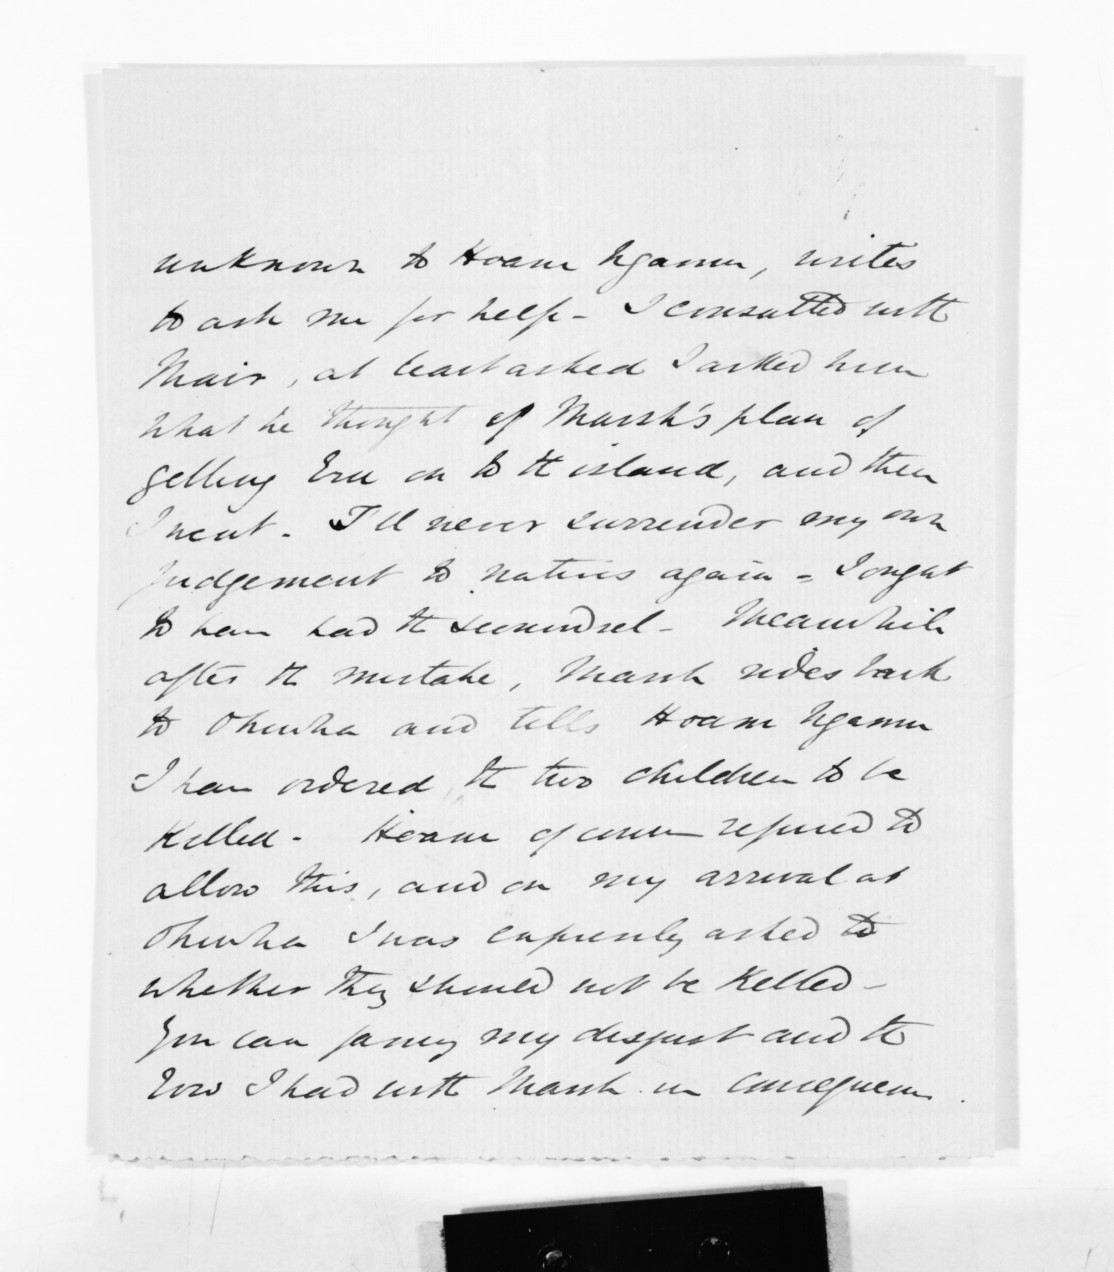 unknown to Hoani Ngamu, writes
to ask me for help - I consulted with
Mair, at least asked I asked him
what he thought of Marsh's plan of
getting Eru on to the island, and then
I went. I'll never surrender my own
judgement to natives again - I ought
to have had the scoundrel - Meanwhile
after the mistake, Marsh rides back
to Ohiwha and tells Hoani Ngamu
I have ordered the two children to be
killed - Hoani of course refused to
allow this, and on my arrival at
Ohiwha I was expressly asked to
whether they should not be killed -
You can fancy my disgust and the
row I had with Marsh in consequence.